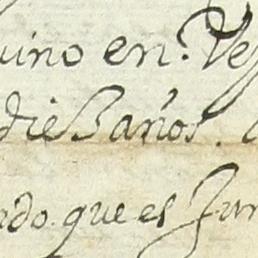 uino en. Ve
dies años.
ndo que es Jun